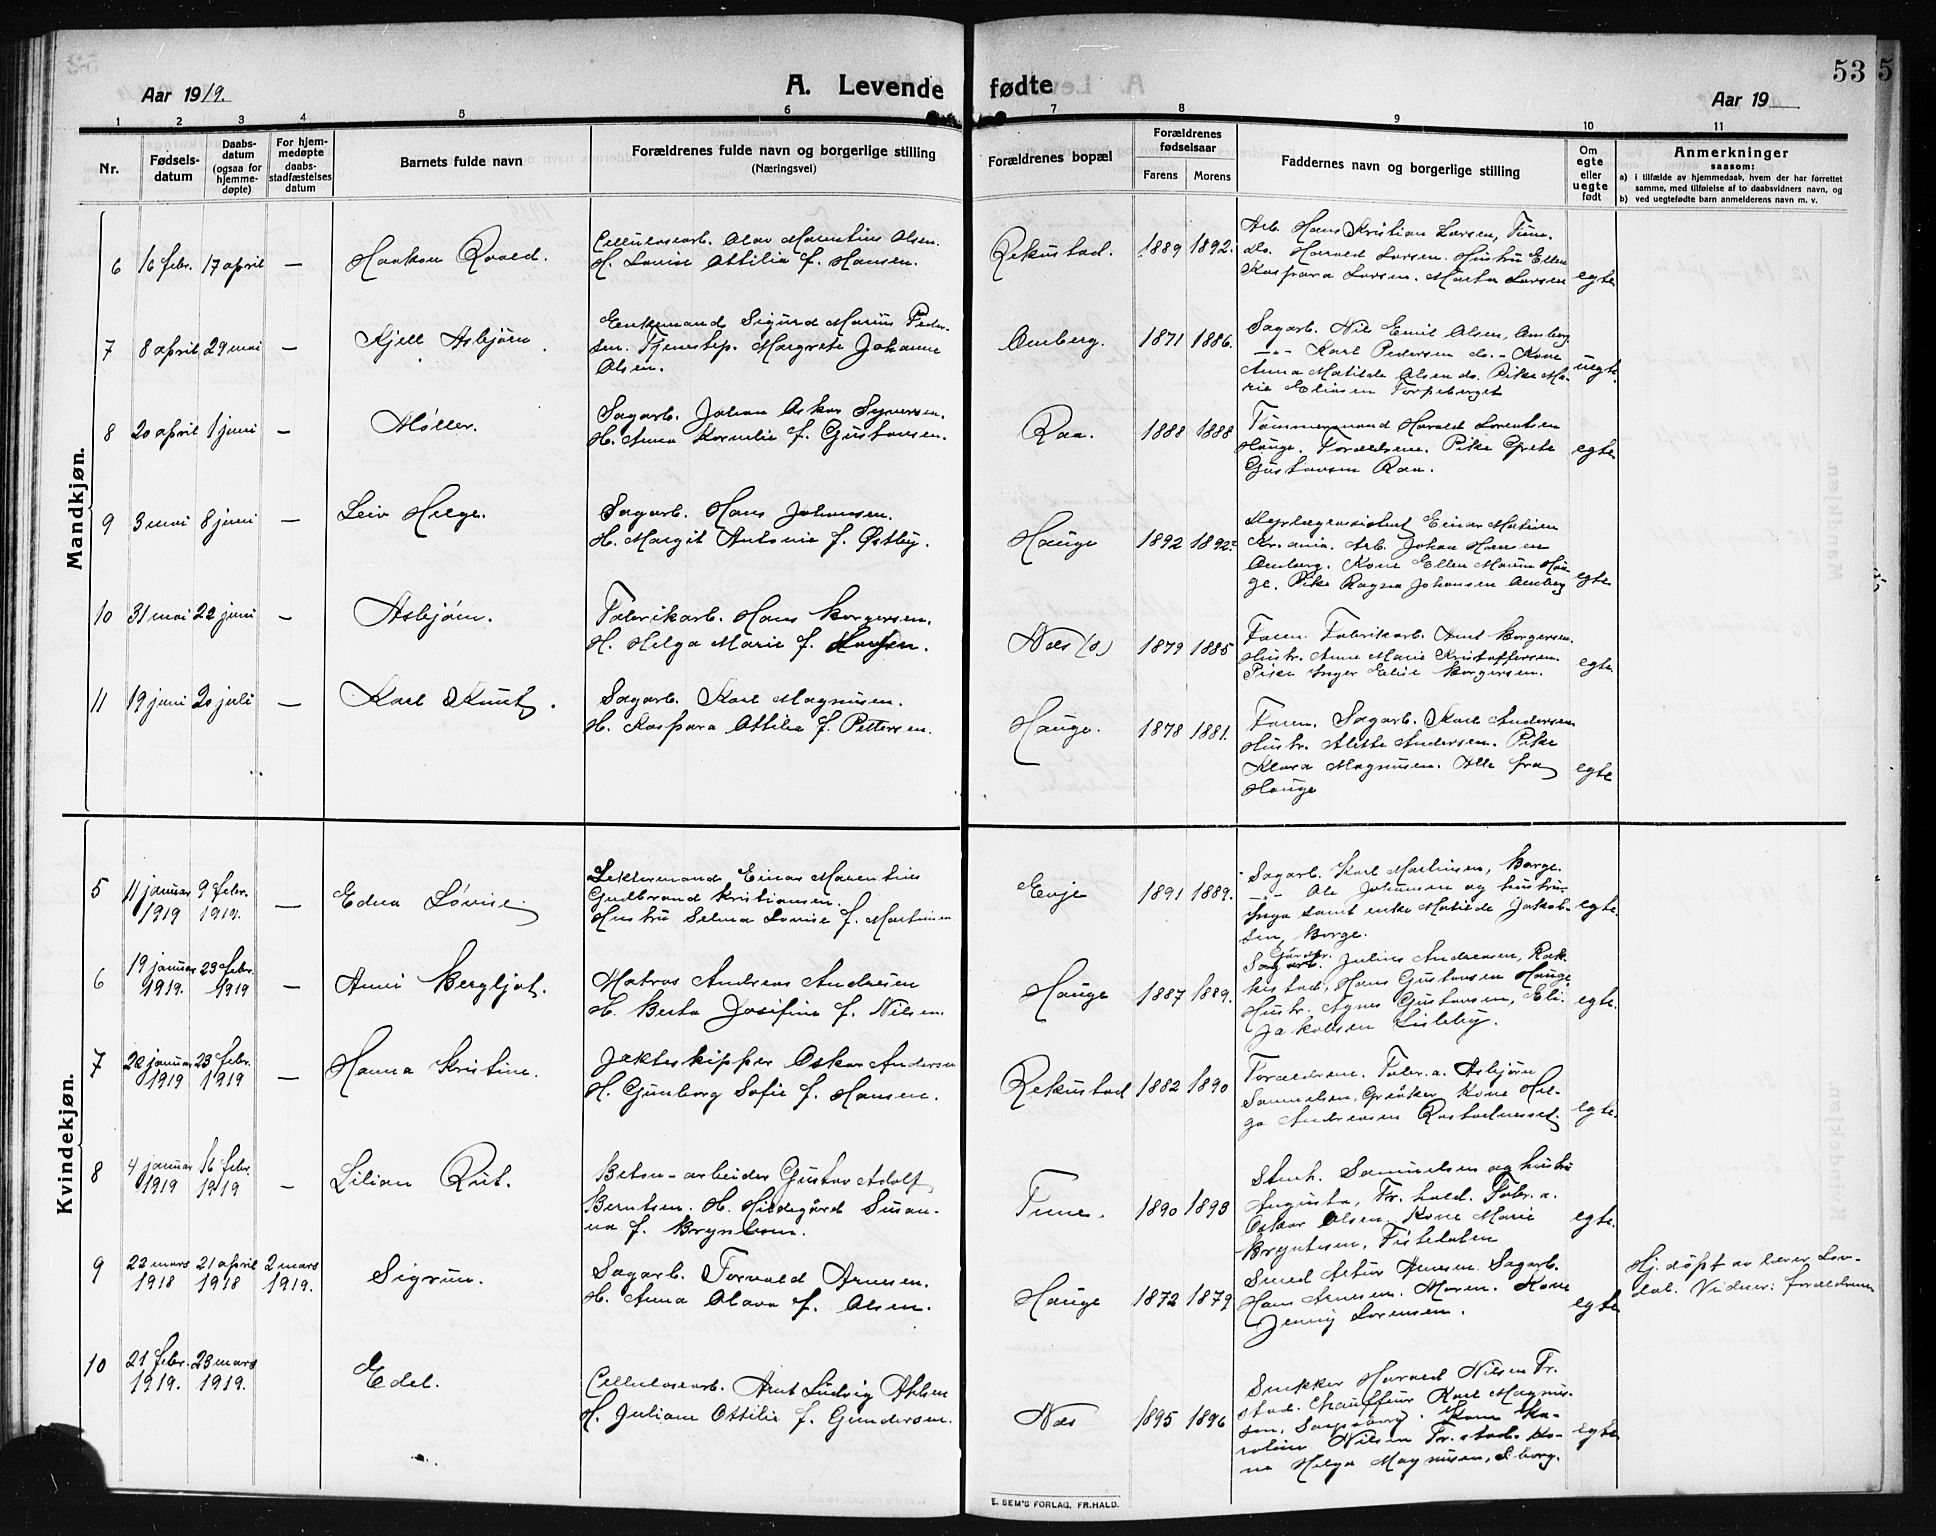 53 5
Aar 1919.
A. Levende fødte
Aar 19
1 2 3 4 5 6 7 8 9 10 11
Nr.
Fødsels-
datum
Daabs-
datum
(ogsaa for
hjemme-
døpte)
For hjem-
medøpte
daabs-
stadfæstelses
datum
Barnets fulde navn
Forældrenes fulde navn og borgerlige stilling
(Næringsvei)
Forældrenes bopæl
Forældrenes
fødselsaar
Farens Morens
Faddernes navn og borgerlige stilling
Om
egte
eller
uegte
født
Anmerkninger
saasom:
a) i tilfælde av hjemmedaab, hvem der har forrettet
samme, med tilføielse af to daabsvidners navn, og
b) ved uegtefødte barn anmelderens navn m. v.
Mandkjøn.
6 16 febr. 17 april — Haakon Roald.
Cellulosearb. Olav Marentius Olsen.
H. Lovise Attilia f. Hansen.
Rekustad. 1889 1892.
Arb. Hans Kristian Larsen, Tune.
do. Harald Larsen. Hustru Ellen
Kaspara Larsen. Marta Larsen egte
7 8 april 29 mai — Kjell Asbjørn.
Enkemand Sigurd Marius Peder-
sen. Tjenestep. Margrete Johanne
Olsen.
Omberg. 1871 1886.
Sagarb. Nils Emil Olsen, Omberg
—"— Karl Pedersen do. – Kone
Anna Matilde Olsen do. Pike Ma-
rie Eliasen Torpeberget
uegte.
8 20 april 1 juni — Møller.
Sagarb. Johan Oskar Syversen.
H. Anna Kornelie f. Gustavsen.
Raa. 1888 1888
Tømmermand Harald Lorentsen
Hauge. Forældrene. Pike Grete
Gustavsen Raa.
egte
9 3 mai 8 juni — Leiv Helge.
Sagarb. Hans Johansen.
H. Margit Antonie f. Østby.
Hauge 1892 1892.
Einar Matisen
Kr.ania. Arb. Johan Hansen
Omberg. Kone Ellen Maurn Hau-
ge. Pike Ragna Johansen Omberg egte
10 31 mai 22 juni — Asbjørn.
Fabrikarb. Hans Borgersen.
H. Helga Marie f. Hansen.
Næs (ø) 1879 1885
Faren. Fabrikarb. Arnt Borgersen.
Hustr. Anne Marie Kristoffersen.
Pike Inger Elise Borgersen.
egte
11 19 juni 20 juli — Karl Knut.
Sagarb. Karl Magnusen.
H. Kaspara Attilia f. Pettersen.
Hauge. 1878 1881.
Faren. Sagarb. Karl Andersen
Hustr. Alette Andersen. Pike
Klara Magnusen. Alle fra
Hauge
egte
Kvindekjøn.
5 11 januar 1919 9 febr. 1919. — Edna Lovise.
Lektermand Einar Marentius
Gudbrand Kristiansen.
Hustru Selma Lovise f. Martinsen
Evje 1891 1889.
Sagarb. Karl Martinsen, Borge.
—"— Ole Johansen og hustru
Inga samt enke Matilde Jakob-
sen, Borge.
egte.
6 19 januar 1919. 23 febr. 1919 — Anni Bergljot.
Matros Andreas Andresen
H. Berta Josifine f. Nilsen.
Hauge 1887 1889.
Gårdbr.
Julius Andresen, Rek-
kustad, Hans Gustavsen Hauge
Hustr. Agnes Gustavsen, Eli-
Jakobsen Lisleby.
egte.
7 22 januar 1919 23 febr. 1919 — Hanna Kristine.
Jakteskipper Oskar Andersen
H. Gunborg Sofie f. Hansen.
Rekustad 1882 1890
Forældrene. Fabr.a. Asbjørn
Samuelsen, Gråker Kone Hel-
ga Andreasen Rostadnesset.
egte.
8 4 januar 1919 16 febr. 1919 — Lilian Rut.
Beton-arbeider Gustav Adolf
Berntsen. H. Hildegård Susan-
na f. Bryntesen.
Tune. 1890 1893
Stenh. Samuelsen og hustru
Augusta, Fr.hald. Fabr.a.
Oskar Olsen. Kone Marie
Bryntesen, Fistedalen
egte.
9 22 mars 1918 21 april 1918 2 mars 1919. Sigrun.
Sagarb. Torvald Arnesen.
H. Anna Olava f. Olsen.
Hauge 1872 1879
Smed Artur Arnesen. Sagarb.
Hans Arnesen. Moren. Kone
Jenny Sorensen.
egte
Hj. døpt av lærer Lon-
dal. Vidner: forældrene
10 21 febr. 1919. 23 mars 1919. Edel.
Cellulosearb. Arnt Ludvig Ahlsen
H. Juliane Ottilie f. Gundersen.
Næs 1895 1896
Snekker Harald Nilsen Fr.
stad. Chauffeur Karl Magnus-
sen, Sarpsborg. Kone Ka-
roline Nilsen Fr.stad. Ko-
ne Helga Magnussen, S.borg.
egte
E. SEM'S FORLAG, FR.HALD.